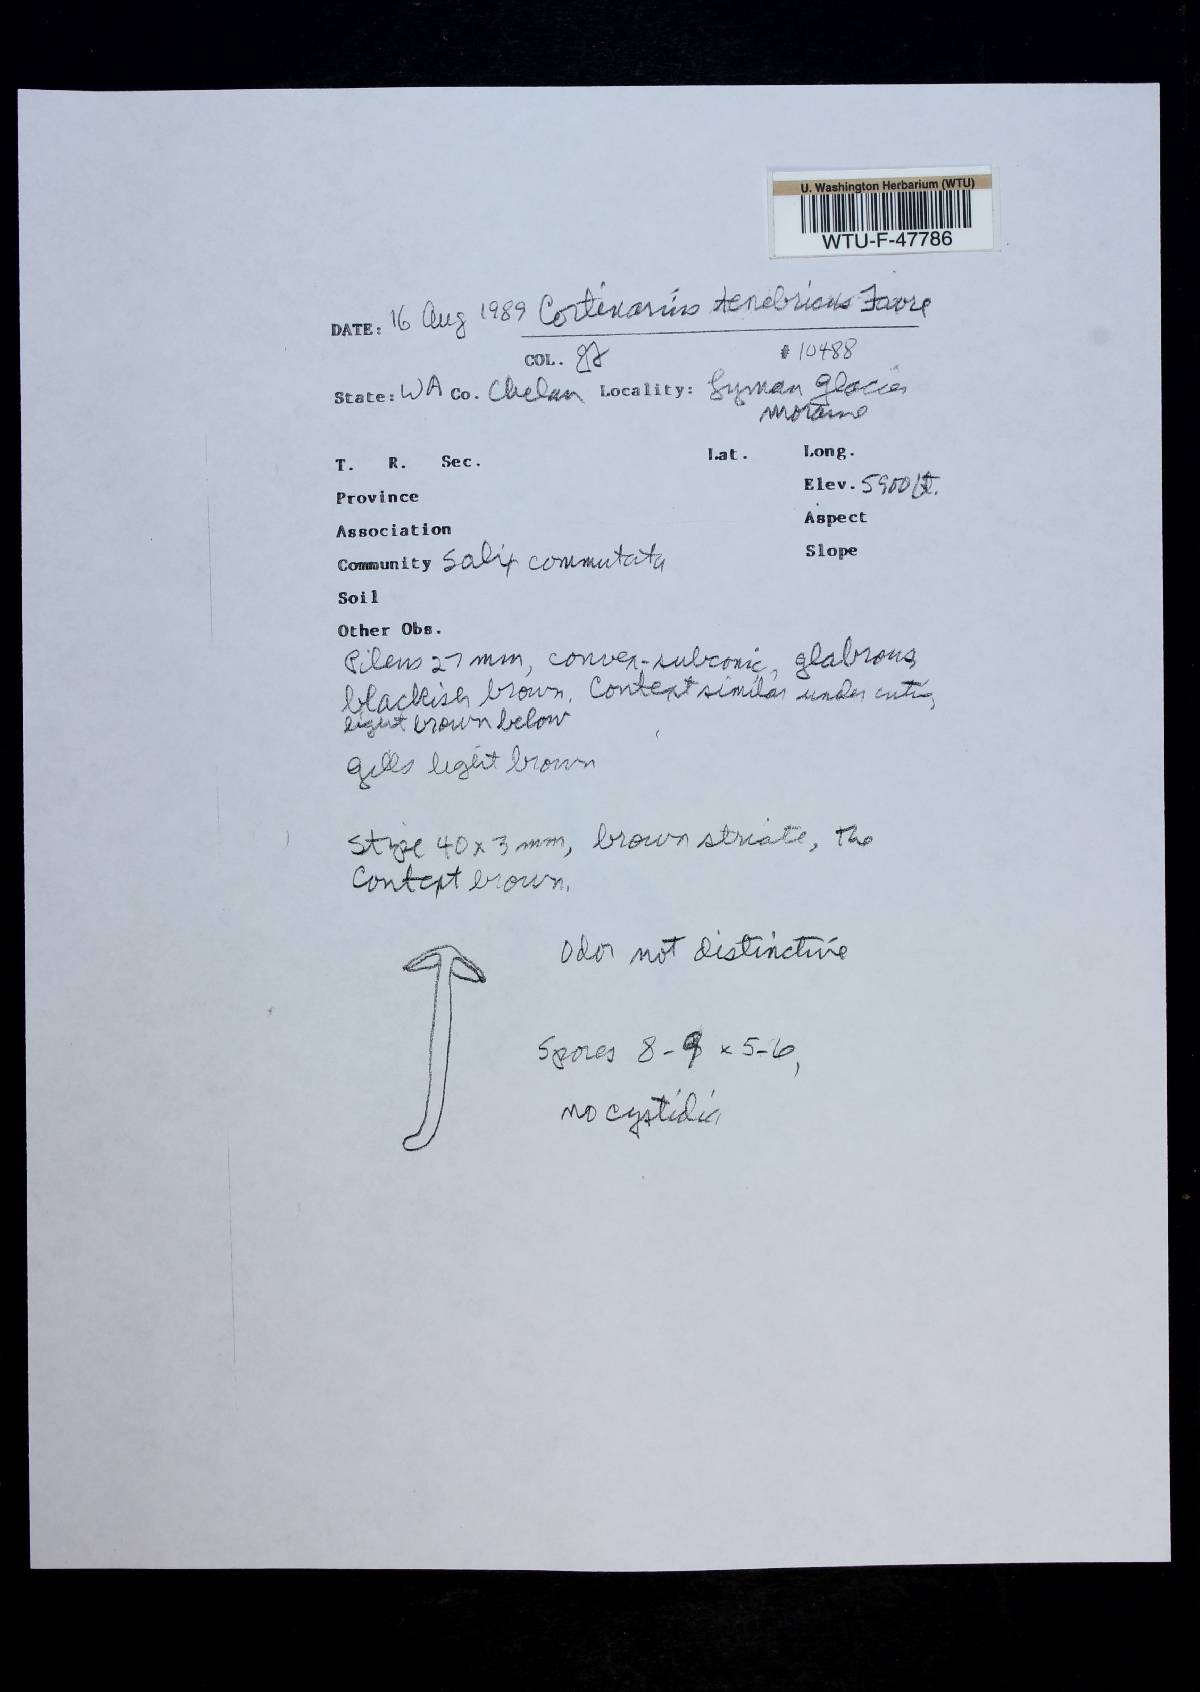 U. Washington Herbarium (WTU)
WTU-F-47786
DATE: 16 Aug 1989 Cortinarius tenebricus Favre
COL. # 10488
State: WA Co. Chelan Locality: Lyman Glacier
Moraine
T. R. Sec. Lat. Long.
Province Elev. 5900 ft.
Association Aspect
Community Salix commutata Slope
Soil
Other Obs.
Pileus 27 mm, convex-subconic, glabrous,
blackish brown. Context similar under cutis,
light brown below
gills light brown
Stipe 40 x 3 mm, brown striate, the
Context brown.
Odor not distinctive
Spores 8-9 x 5-6,
no cystidia